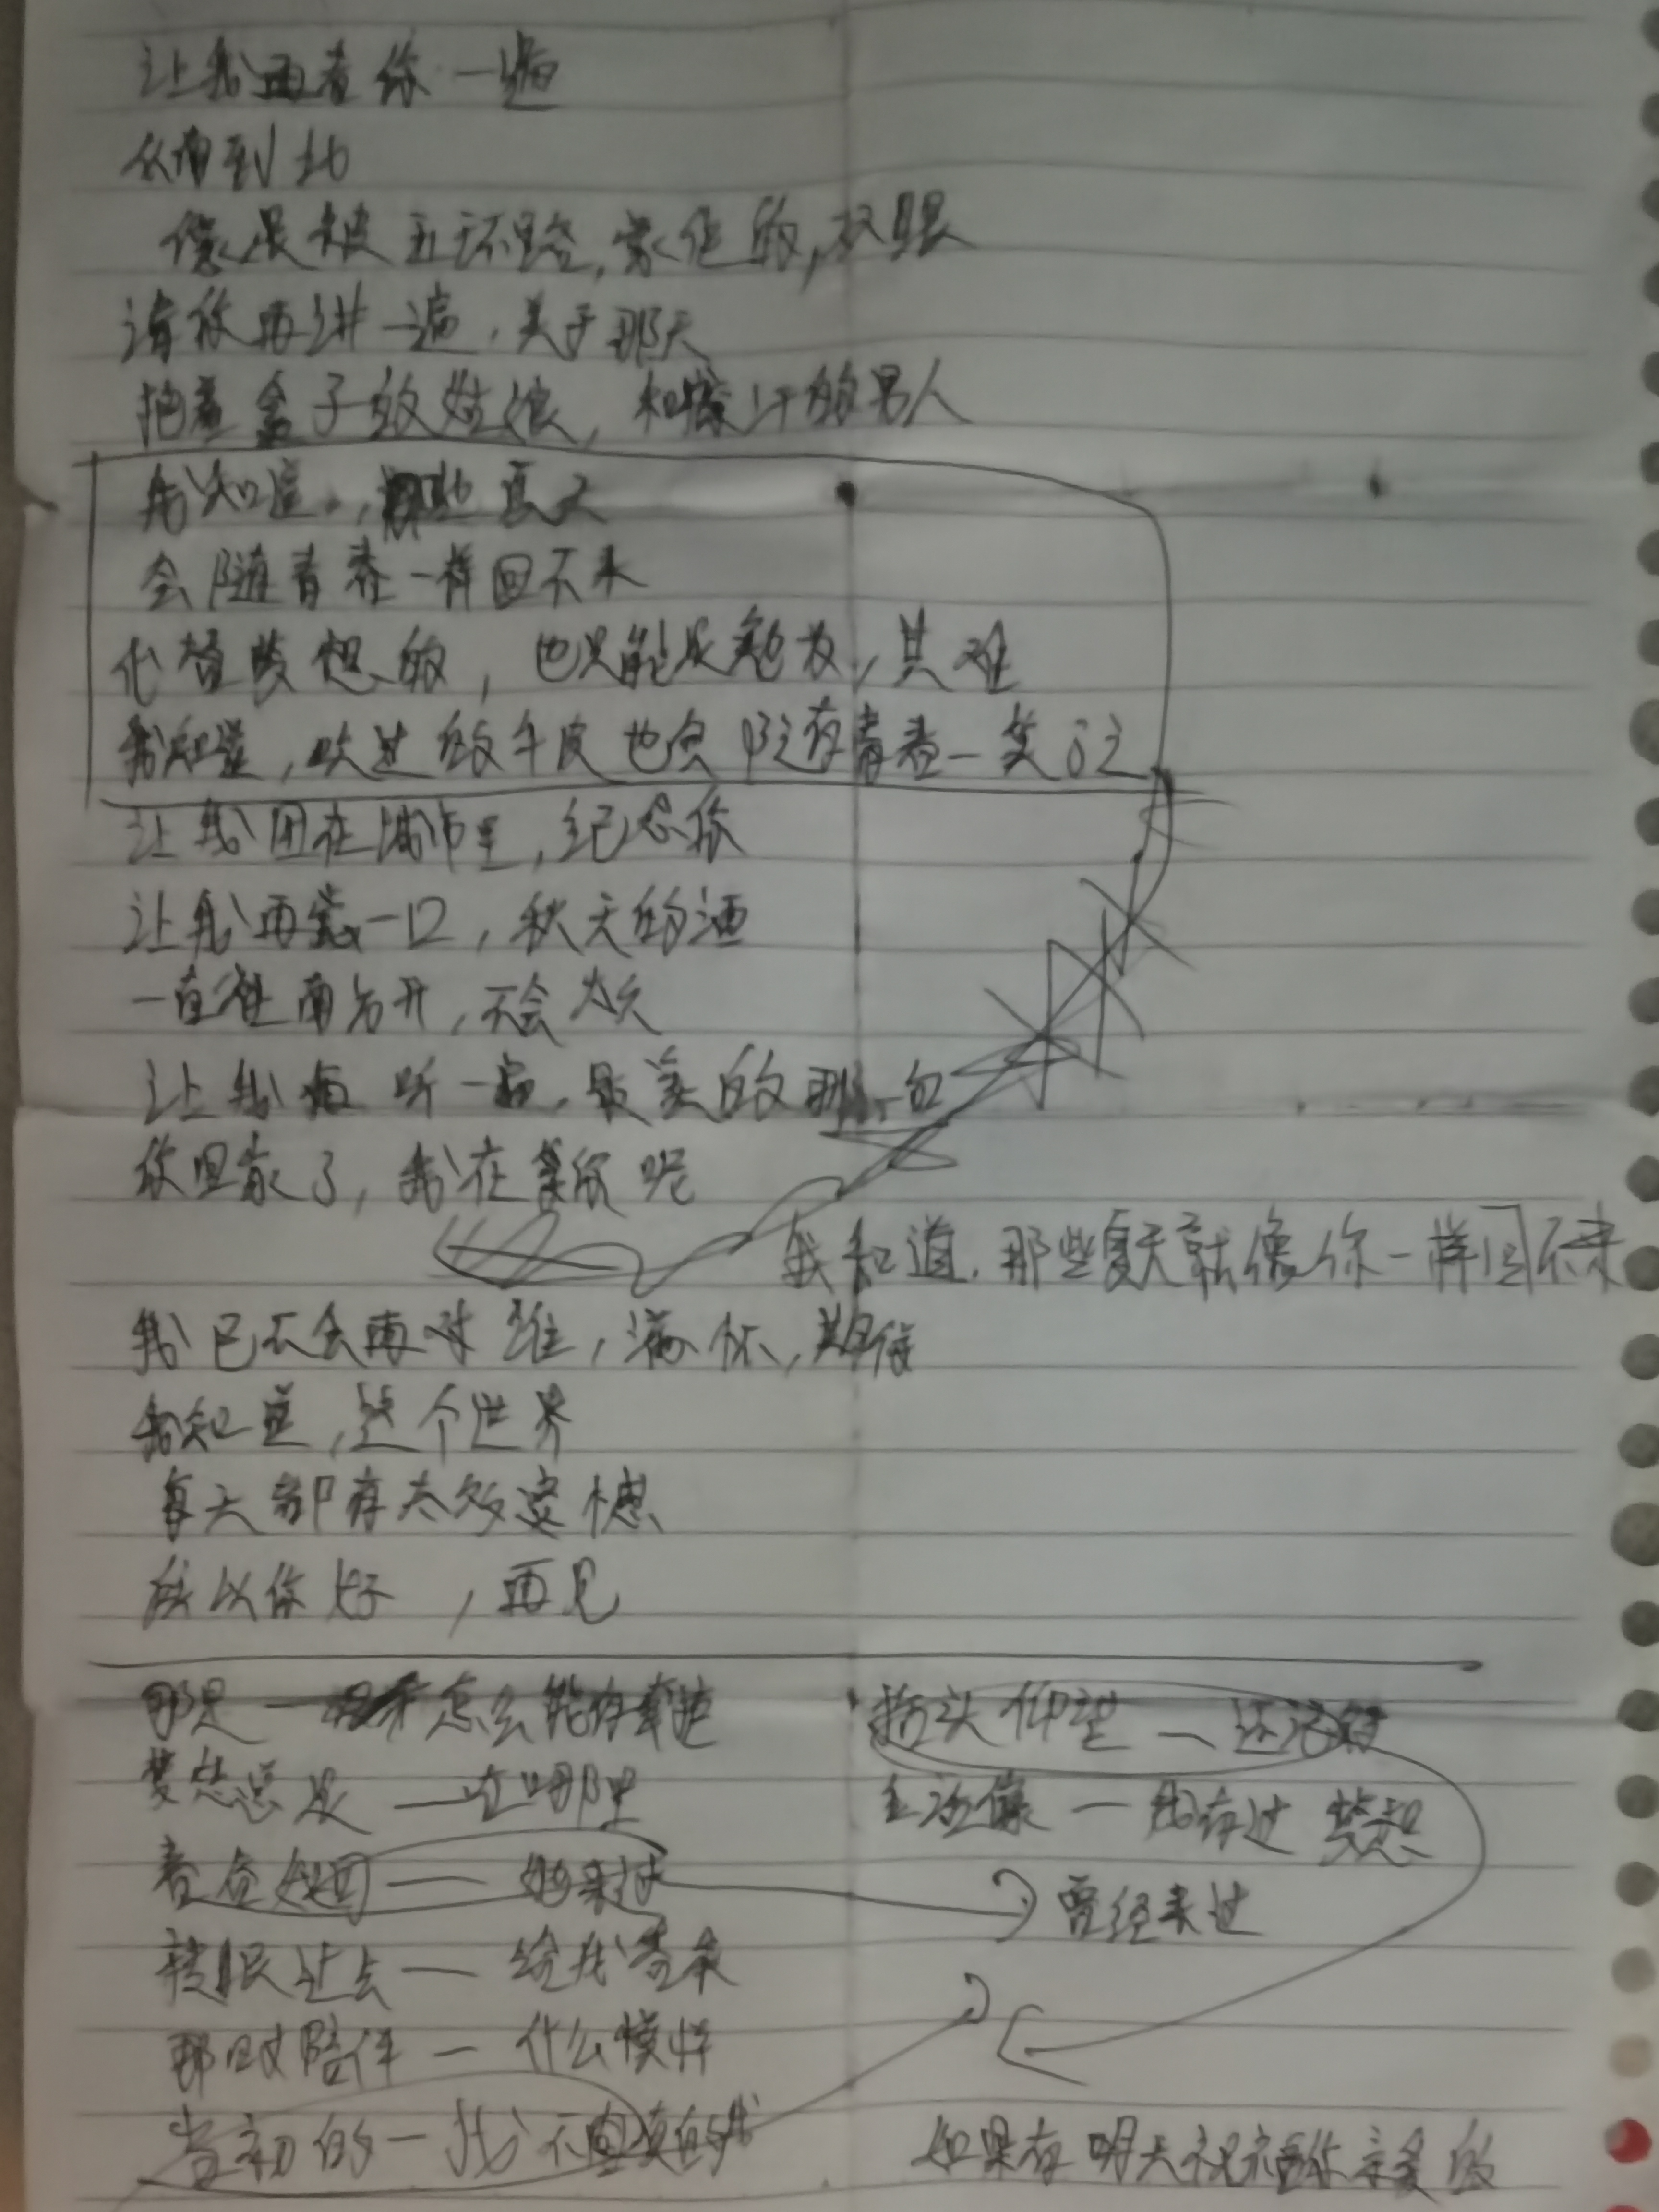 让我再看你一遍
从南到北
像是被五环路,蒙住的,双眼
请你再讲一遍,关于那天
抱着盒子的姑娘,和擦汗的男人
我知道,那些夏天
会随青春一样回不来
代替梦想的,也只能是勉为,其难
我知道,吹过的牛皮也会随青春一笑了之
让我困在城市里,纪念你
让我再尝一口,秋天的酒
一直往南方开,不会太久
让我再听一遍,最美的那一句
你回家了,我在等你呢
我知道.那些夏天就像你一样回不来
我已不会再对谁,满怀,期待
我知道,这个世界
每天都有太多遗憾
所以你好,再见
那是一 怎么能有牵挂
梦想总是 — 在哪里
春
转眼过去 — 给我答案
那时陪伴 — 什么模样
当初的 — 我 不
抬头仰望 —
生活像 — 我有过梦想
曾经来过
如果有明天祝福你亲爱的